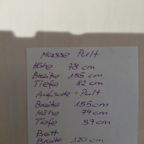 Masse Pult
Höhe 78 cm
Breite 155 cm
Tiefe 82 cm
Aufsatz - Pult
Breite 155 cm
Höhe 74 cm
Tiefe 37 cm
Bett
Breite 120 cm